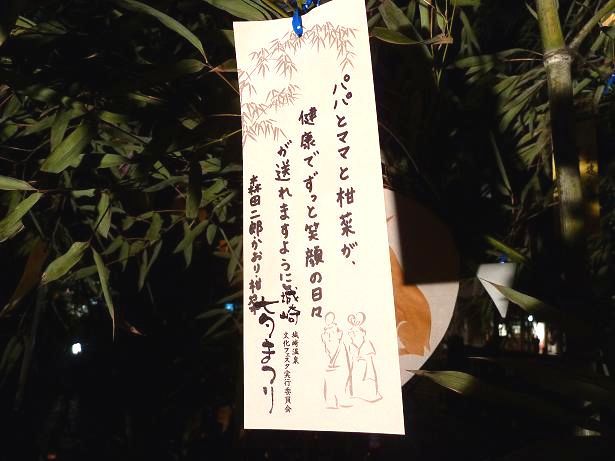 パパとママと柑菜が、
健康でずっと笑顔の日々
が送れますように
森田二郎・かおり・柑菜
城崎
七夕まつり
城崎温泉
文化フェスタ実行委員会